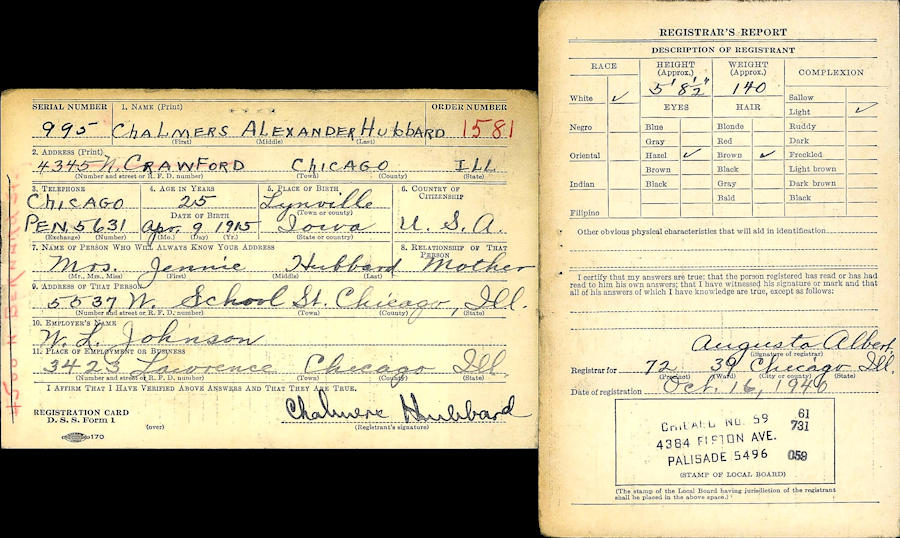 SERIAL NUMBER 1. NAME (Print) ORDER NUMBER
995 CHALMERS ALEXANDER HUBBARD 1581
(First) (Middle) (Last)
2. ADDRESS (Print)
4345 N. CRAWFORD CHICAGO ILL
(Number and street or R. F. D. number) (Town) (County) (State)
3. TELEPHONE 4. AGE IN YEARS 5. PLACE OF BIRTH 6. COUNTRY OF CITIZENSHIP
CHICAGO 25 Lynville
DATE OF BIRTH (Town or county)
PEN. 5631 Apr. 9 1915 Iowa U. S. A.
(Exchange) (Number) (Mo.) (Day) (Yr.) (State or country)
7. NAME OF PERSON WHO WILL ALWAYS KNOW YOUR ADDRESS 8. RELATIONSHIP OF THAT PERSON
Mrs. Jennie Hubbard Mother
(Mr., Mrs., Miss) (First) (Middle) (Last)
9. ADDRESS OF THAT PERSON
5537 W. School St. Chicago, Ill.
(Number and street or R. F. D. number) (Town) (County) (State)
10. EMPLOYER'S NAME
W. L. Johnson
11. PLACE OF EMPLOYMENT OR BUSINESS
3423 Lawrence Chicago Ill.
(Number and street or R. F. D. number) (Town) (County) (State)
I AFFIRM THAT I HAVE VERIFIED ABOVE ANSWERS AND THAT THEY ARE TRUE.
REGISTRATION CARD
D. S. S. Form 1
(over)
Chalmers Hubbard
(Registrant's signature)
170
REGISTRAR'S REPORT
DESCRIPTION OF REGISTRANT
RACE HEIGHT (Approx.) WEIGHT (Approx.) COMPLEXION
5' 8½" 140
White ✓ EYES HAIR Sallow
Light ✓
Negro Blue Blonde Ruddy
Gray Red Dark
Oriental Hazel ✓ Brown ✓ Freckled
Brown Black Light brown
Indian Black Gray Dark brown
Bald Black
Filipino
Other obvious physical characteristics that will aid in identification
I certify that my answers are true; that the person registered has read or has had
read to him his own answers; that I have witnessed his signature or mark and that
all of his answers of which I have knowledge are true, except as follows:
Augusta Albert
(Signature of registrar)
Registrar for 72 39 Chicago Ill.
(Precinct) (Ward) (City or county) (State)
Date of registration Oct. 16, 1940
CHICAGO NO. 59 61
731
4384 ELSTON AVE.
PALISADE 5496 059
(STAMP OF LOCAL BOARD)
(The stamp of the Local Board having jurisdiction of the registrant
shall be placed in the above space.)